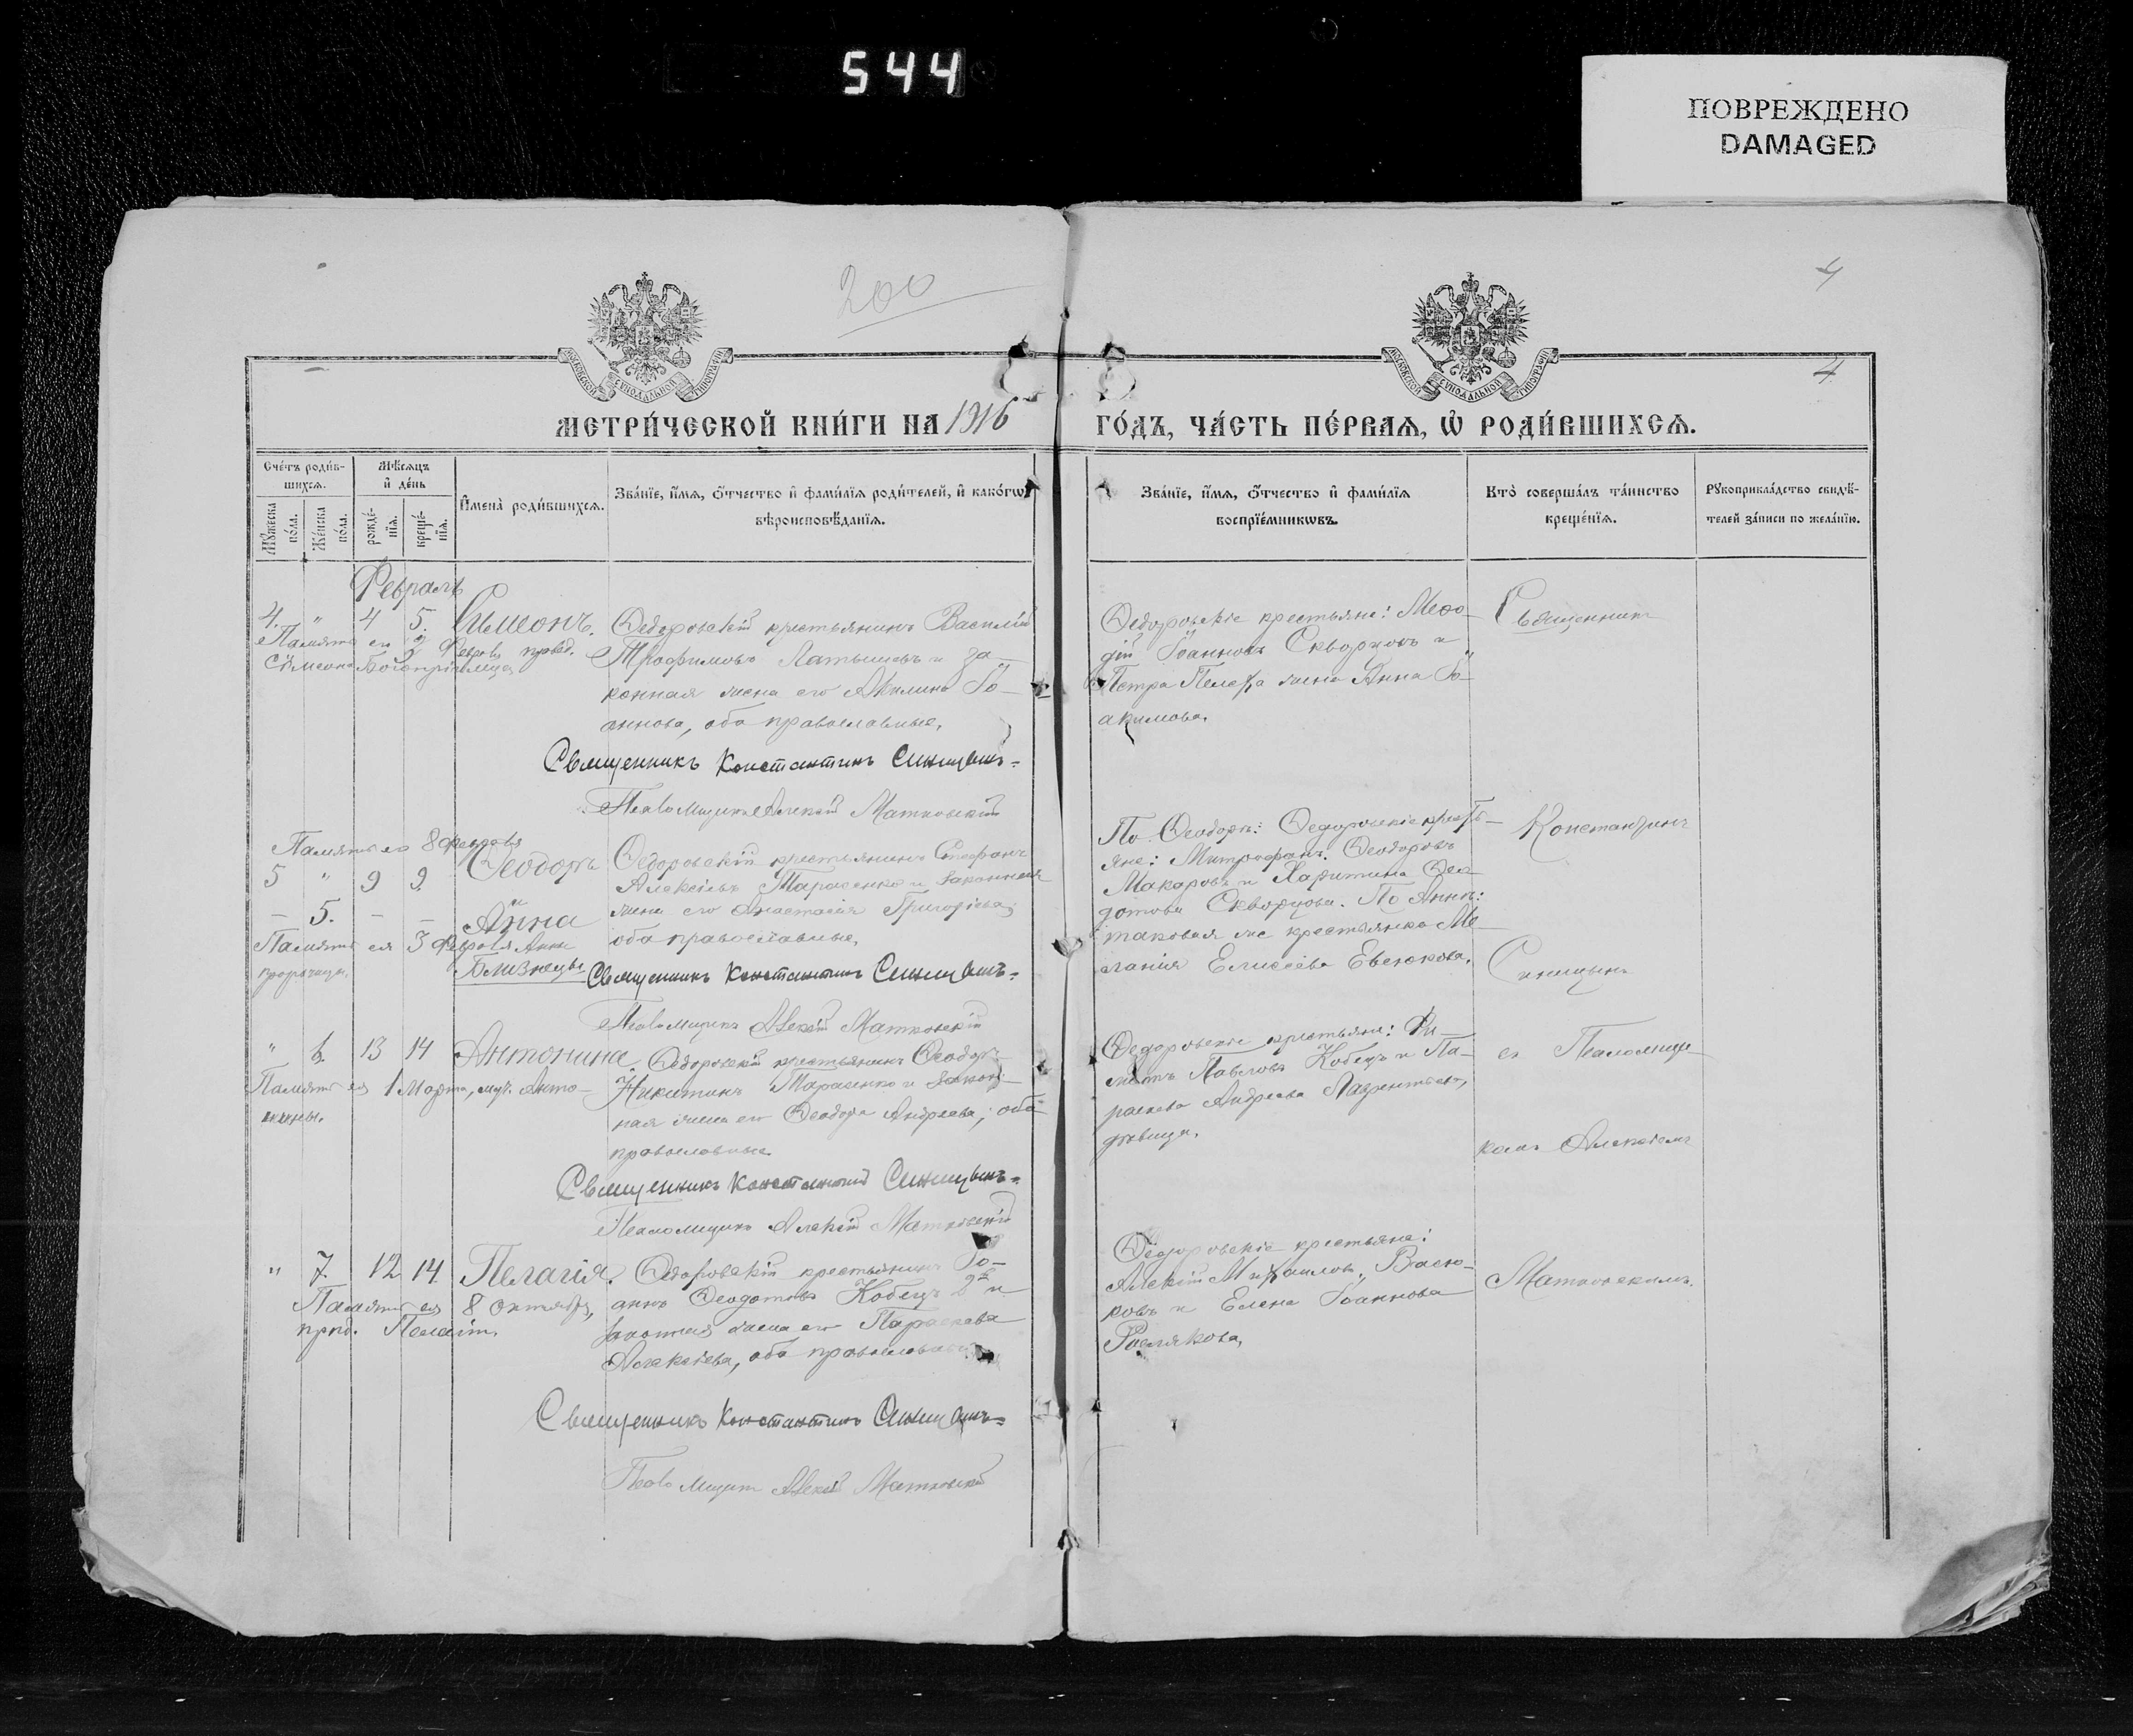 544
ПОВРЕЖДЕНО
DAMAGED
200
4
4
МЕТРИ́ЧЕСКОЙ КНИ́ГИ НА 1916
ГО́ДЪ, ЧА́СТЬ ПЕ́РВАѦ, Ѽ РОДИ́ВШИХСѦ.
Сче́тъ роди́в-
шихсѧ.
Мѣ́сѧцъ
и҆ де́нь
Мꙋ́жеска по́ла.
Же́нска по́ла.
рожде́-
нїѧ.
креще́-
нїѧ.
И҆мена̀ роди́вшихсѧ.
Зва́нїе, и҆́мѧ, ѻ҆́тчество и҆ фами́лїѧ роди́телей, и҆ како́гѡ
вѣроисповѣ́данїѧ.
Зва́нїе, и҆́мѧ, ѻ҆́тчество и҆ фами́лїѧ
воспрїе́мникѡвъ.
Кто̀ соверша́лъ та́инство
креще́нїѧ.
Рꙋкоприкла́дство свидѣ́-
телей за́писи по жела́нїю.
Февраль
4. " 4 5. Симеонъ.
Память его 3 Февраля правед.
Сѵмеона Богопріимца
Ѳедоровскій крестьянинъ Василій
Трофимовъ Латышевъ и за-
конная жена его Акилина Іо-
аннова, оба православные.
Священникъ Константинъ Синицынъ
Псаломщикъ Алексій Матковскій
Ѳедоровскіе крестьяне: Меѳо-
дій Іоанновъ Скворцовъ и
Петра жена Анна Іо-
акимова.
Священник
Память его 8 Февраля
5 " 9 9. Ѳеодоръ
— 5. — — Анна
Память ея 3 Февраля Анны
пророчицы.
Близнецы
Ѳедоровскій крестьянинъ Стефанъ
Алексіевъ Тарасенко и законная
жена его Анастасія Григоріева,
оба православные.
Священникъ Константинъ Синицынъ
Псаломщикъ Алексій Матковскій
По Ѳеодорѣ: Ѳедоровскіе кресть-
яне: Митрофанъ Ѳеодоровъ
Макаровъ и Харитина Ѳео-
дотова Скворцова. По Аннѣ:
таковая же крестьянка Ме-
ланія Елисеева Евсюкова.
Константинъ
Синицынъ
" 6. 13 14 Антонина.
Память ея 1 Марта, муч. Анто-
нины.
Ѳедоровскій крестьянинъ Ѳеодоръ
Никитинъ Тарасенко и закон-
ная жена его Ѳеодора Андреева, оба
православные.
Священникъ Константинъ Синицынъ
Псаломщикъ Алексій Матковскій
Ѳедоровскіе крестьяне: Фи-
липпъ Павловъ Кобецъ и Па-
раскева Андреева Лаврентьева,
дѣвица.
съ Псаломщи-
комъ Алексіемъ
" 7. 12 14. Пелагія.
Память ея 8 Октября,
прпд. Пелагіи.
Ѳедоровскій крестьянинъ Іо-
аннъ Ѳеодотовъ Кобецъ 2й и
законная жена его Параскева
Алексіева, оба православные
Священникъ Константинъ Синицынъ
Псаломщикъ Алексій Матковскій
Ѳедоровскіе крестьяне:
Алексій Михаиловъ Васю-
ковъ и Елена Іоаннова
Рослякова,
Матковскимъ.